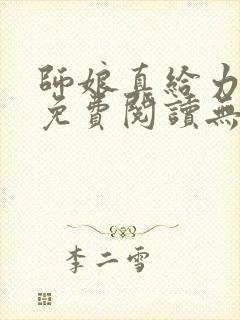 師娘真給力
免費閱讀無
李二雪